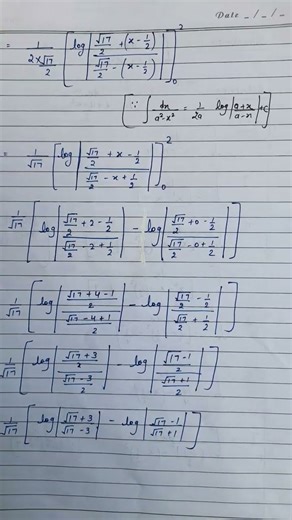 Date _/_/_
= 1/(2×√17/2) [log |(√17/2 + (x - 1/2))/(√17/2 - (x - 1/2))|]₀²
[∵ ∫ dx/(a²-x²) = 1/2a log |(a+x)/(a-x)| + c]
= 1/√17 [log |(√17/2 + x - 1/2)/(√17/2 - x + 1/2)|]₀²
1/√17 [log |(√17/2 + 2 - 1/2)/(√17/2 - 2 + 1/2)| - log |(√17/2 + 0 - 1/2)/(√17/2 - 0 + 1/2)|]
1/√17 [log |((√17 + 4 - 1)/2)/((√17 - 4 + 1)/2)| - log |(√17/2 - 1/2)/(√17/2 + 1/2)|]
1/√17 [log |((√17 + 3)/2)/((√17 - 3)/2)| - log |((√17 - 1)/2)/((√17 + 1)/2)|]
1/√17 [log |(√17 + 3)/(√17 - 3)| - log |(√17 - 1)/(√17 + 1)|]